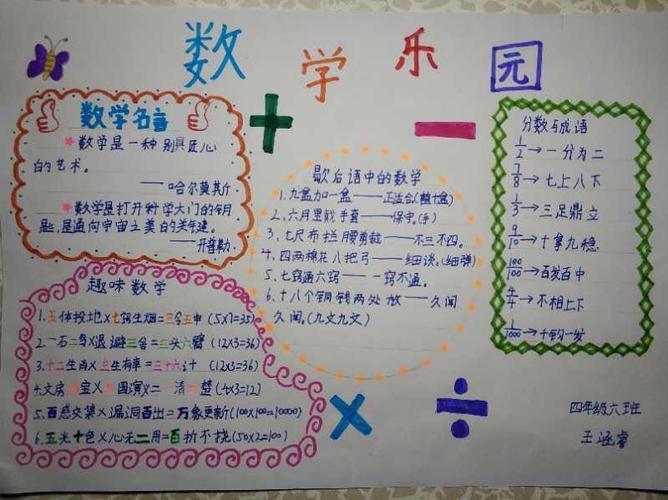 数学乐园
数学名言
数学是一种别具匠心
的艺术。
——哈尔莫斯
数学是打开科学大门的钥
匙,是通向宇宙之美的关键。
——开普勒
趣味数学
1.五体投地×七窍生烟=三令五申(5×7=35)
2.一石二鸟×退避三舍=三头六臂(12×3=36)
3.十二生肖×三生有幸=三十六计(12×3=36)
4.文房四宝×三国演义=一清二楚(4×3=12)
5.百感交集×漏洞百出=万象更新(100×100=10000)
6.五光十色×心无二用=百折不挠(50×2=100)
歇后语中的数学
1.九盒加一盒——正合(整十盒)
2、六月里戴手套——保守。(手)
3.七尺布拦腰剪韯——不三不四。
4.四两棉花八把弓——细谈。(细弹)
5.七窍通六窍——一窍不通。
6.十八个铜钱两处放——久闻
久闻。(九文九文)
分数与成语
1/2→一分为二
7/8→七上八下
1/3→三足鼎立
9/10→十拿九稳
100/100→百发百中
4/4→不相上下
1/1000→千钧一发
四年级六班
王涵睿